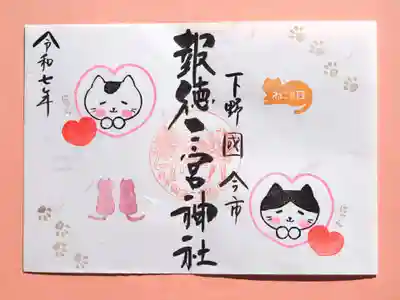 下野國 今市
ねこの日
報徳二宮神社
令和七年